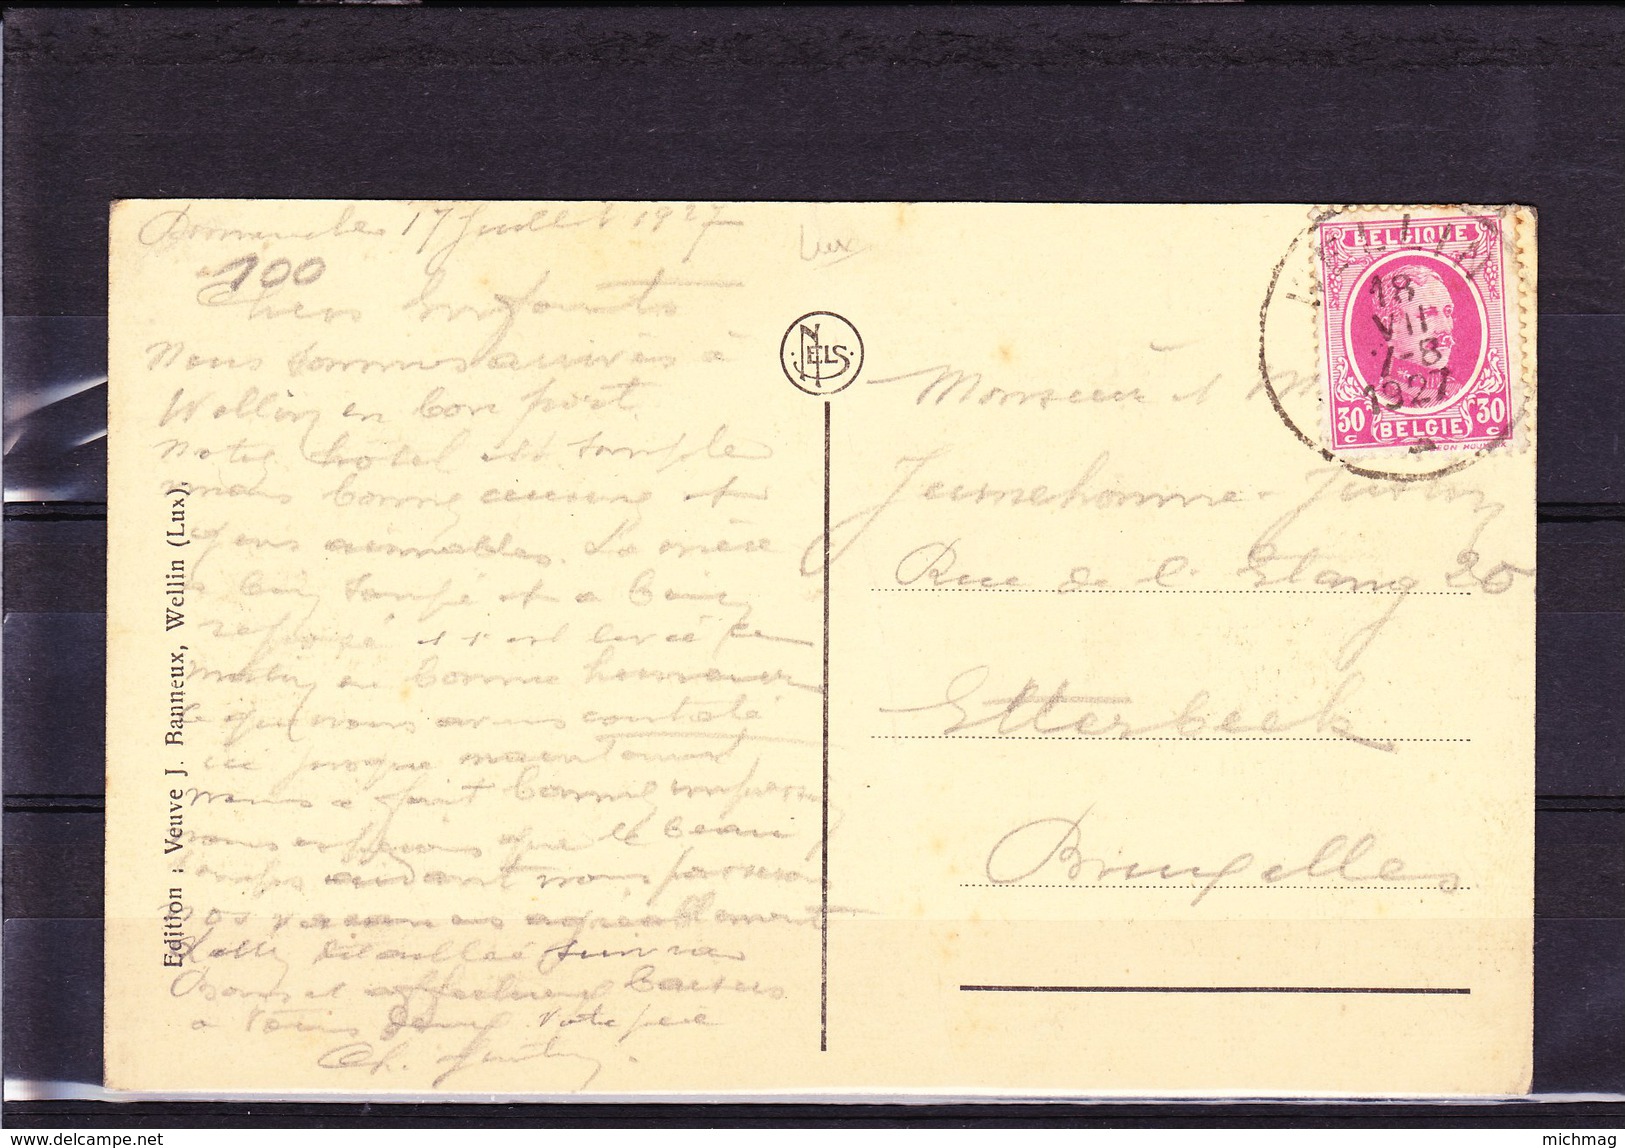 Dimanche 17 Juillet 1927
100
Lux
Chers Enfants
Nous sommes arrivés à
Wellin en bon port
Notre hotel est simple
mais bonne cuisine et
gens aimables. La mère
a bien soupé et a bien
reposé et s'est levée ce
matin de bonne humeur
Ce que nous avons constaté
ici jusque maintenant
nous a fait bonne impression
nous espérons que le beau
temps aidant nous passerons
nos vacances agréablement
Lettre détaillée suivra
affectueux baisers
à vous deux votre père
Ch.
Edition : Veuve J. Banneux, Wellin (Lux).
NELS
WELLIN
18
VII
7-8
1927
BELGIQUE
30 c
30 c
BELGIE
Monsieur et M
Jeunehomme-
Rue de l'Etang 20
Etterbeek
Bruxelles
delcampe.net
michmag